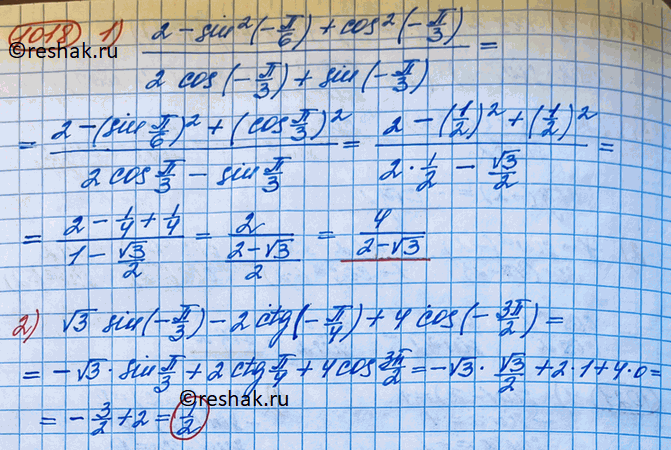 1018 1) (2 - sin²(-π/6) + cos²(-π/3)) / (2 cos(-π/3) + sin(-π/3)) =
©reshak.ru
= (2 - (sin π/6)² + (cos π/3)²) / (2 cos π/3 - sin π/3) = (2 - (1/2)² + (1/2)²) / (2 · 1/2 - √3/2) =
= (2 - 1/4 + 1/4) / (1 - √3/2) = 2 / ((2-√3)/2) = 4 / (2-√3)
2) √3 sin(-π/3) - 2 ctg(-π/4) + 4 cos(-3π/2) =
= -√3 · sin π/3 + 2 ctg π/4 + 4 cos 3π/2 = -√3 · √3/2 + 2·1 + 4·0 =
= -3/2 + 2 = 1/2
©reshak.ru